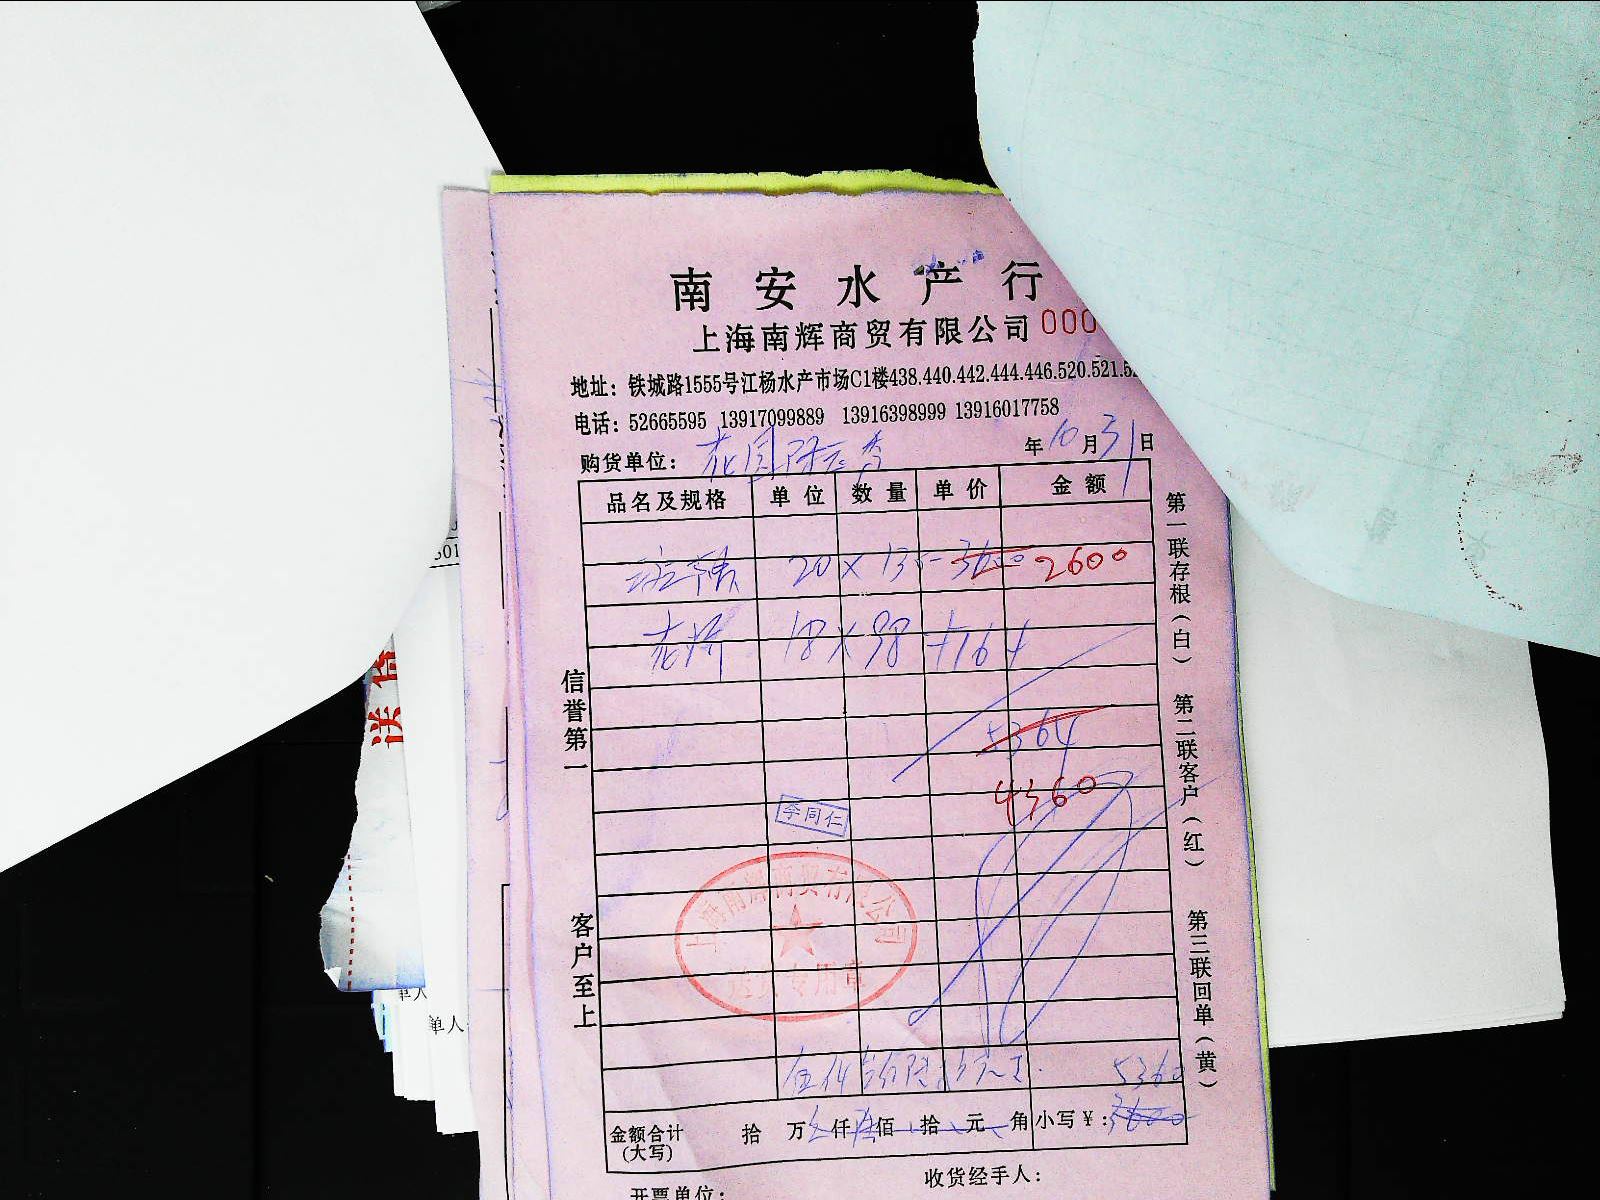 南安水产行
上海南辉商贸有限公司 000
地址：铁城路1555号江杨水产市场C1楼438.440.442.444.446.520.521.5
电话：52665595 13917099889 13916398999 13916017758
购货单位：花园
年10月31日
品名及规格 单位 数量 单价 金额
20×13 3600 2600
18×98 1764
5364
4360
李同仁
上海南辉商贸有限公司
专用章
5360
金额合计(大写) 拾 万 仟 佰 拾 元 角 小写￥：3600
收货经手人：
开票单位：
信誉第一
客户至上
第一联存根(白)
第二联客户(红)
第三联回单(黄)
单人
单人
501
送